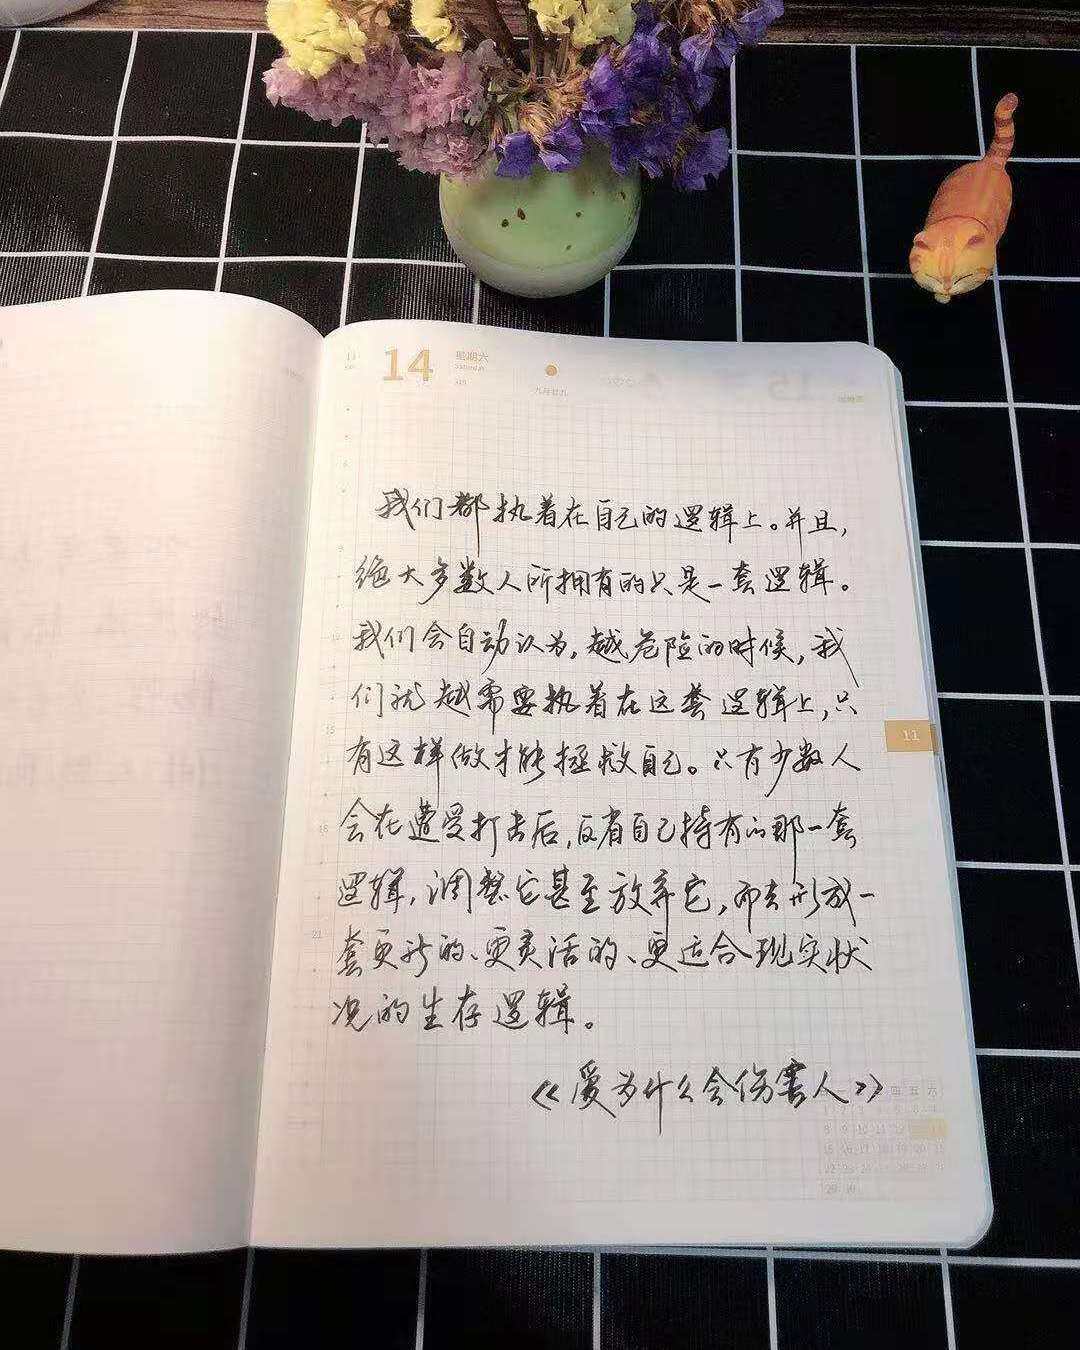 14
星期六
Saturday
九月廿九
我们都执着在自己的逻辑上。并且,
绝大多数人所拥有的只是一套逻辑。
我们会自动认为,越危险的时候,我
们就越需要执着在这套逻辑上,只
有这样做才能拯救自己。只有少数人
会在遭受打击后,反省自己持有的那一套
逻辑,调整它甚至放弃它,而去形成一
套更新的、更灵活的、更适合现实状
况的生存逻辑。
《爱为什么会伤害人》
11
四 五 六